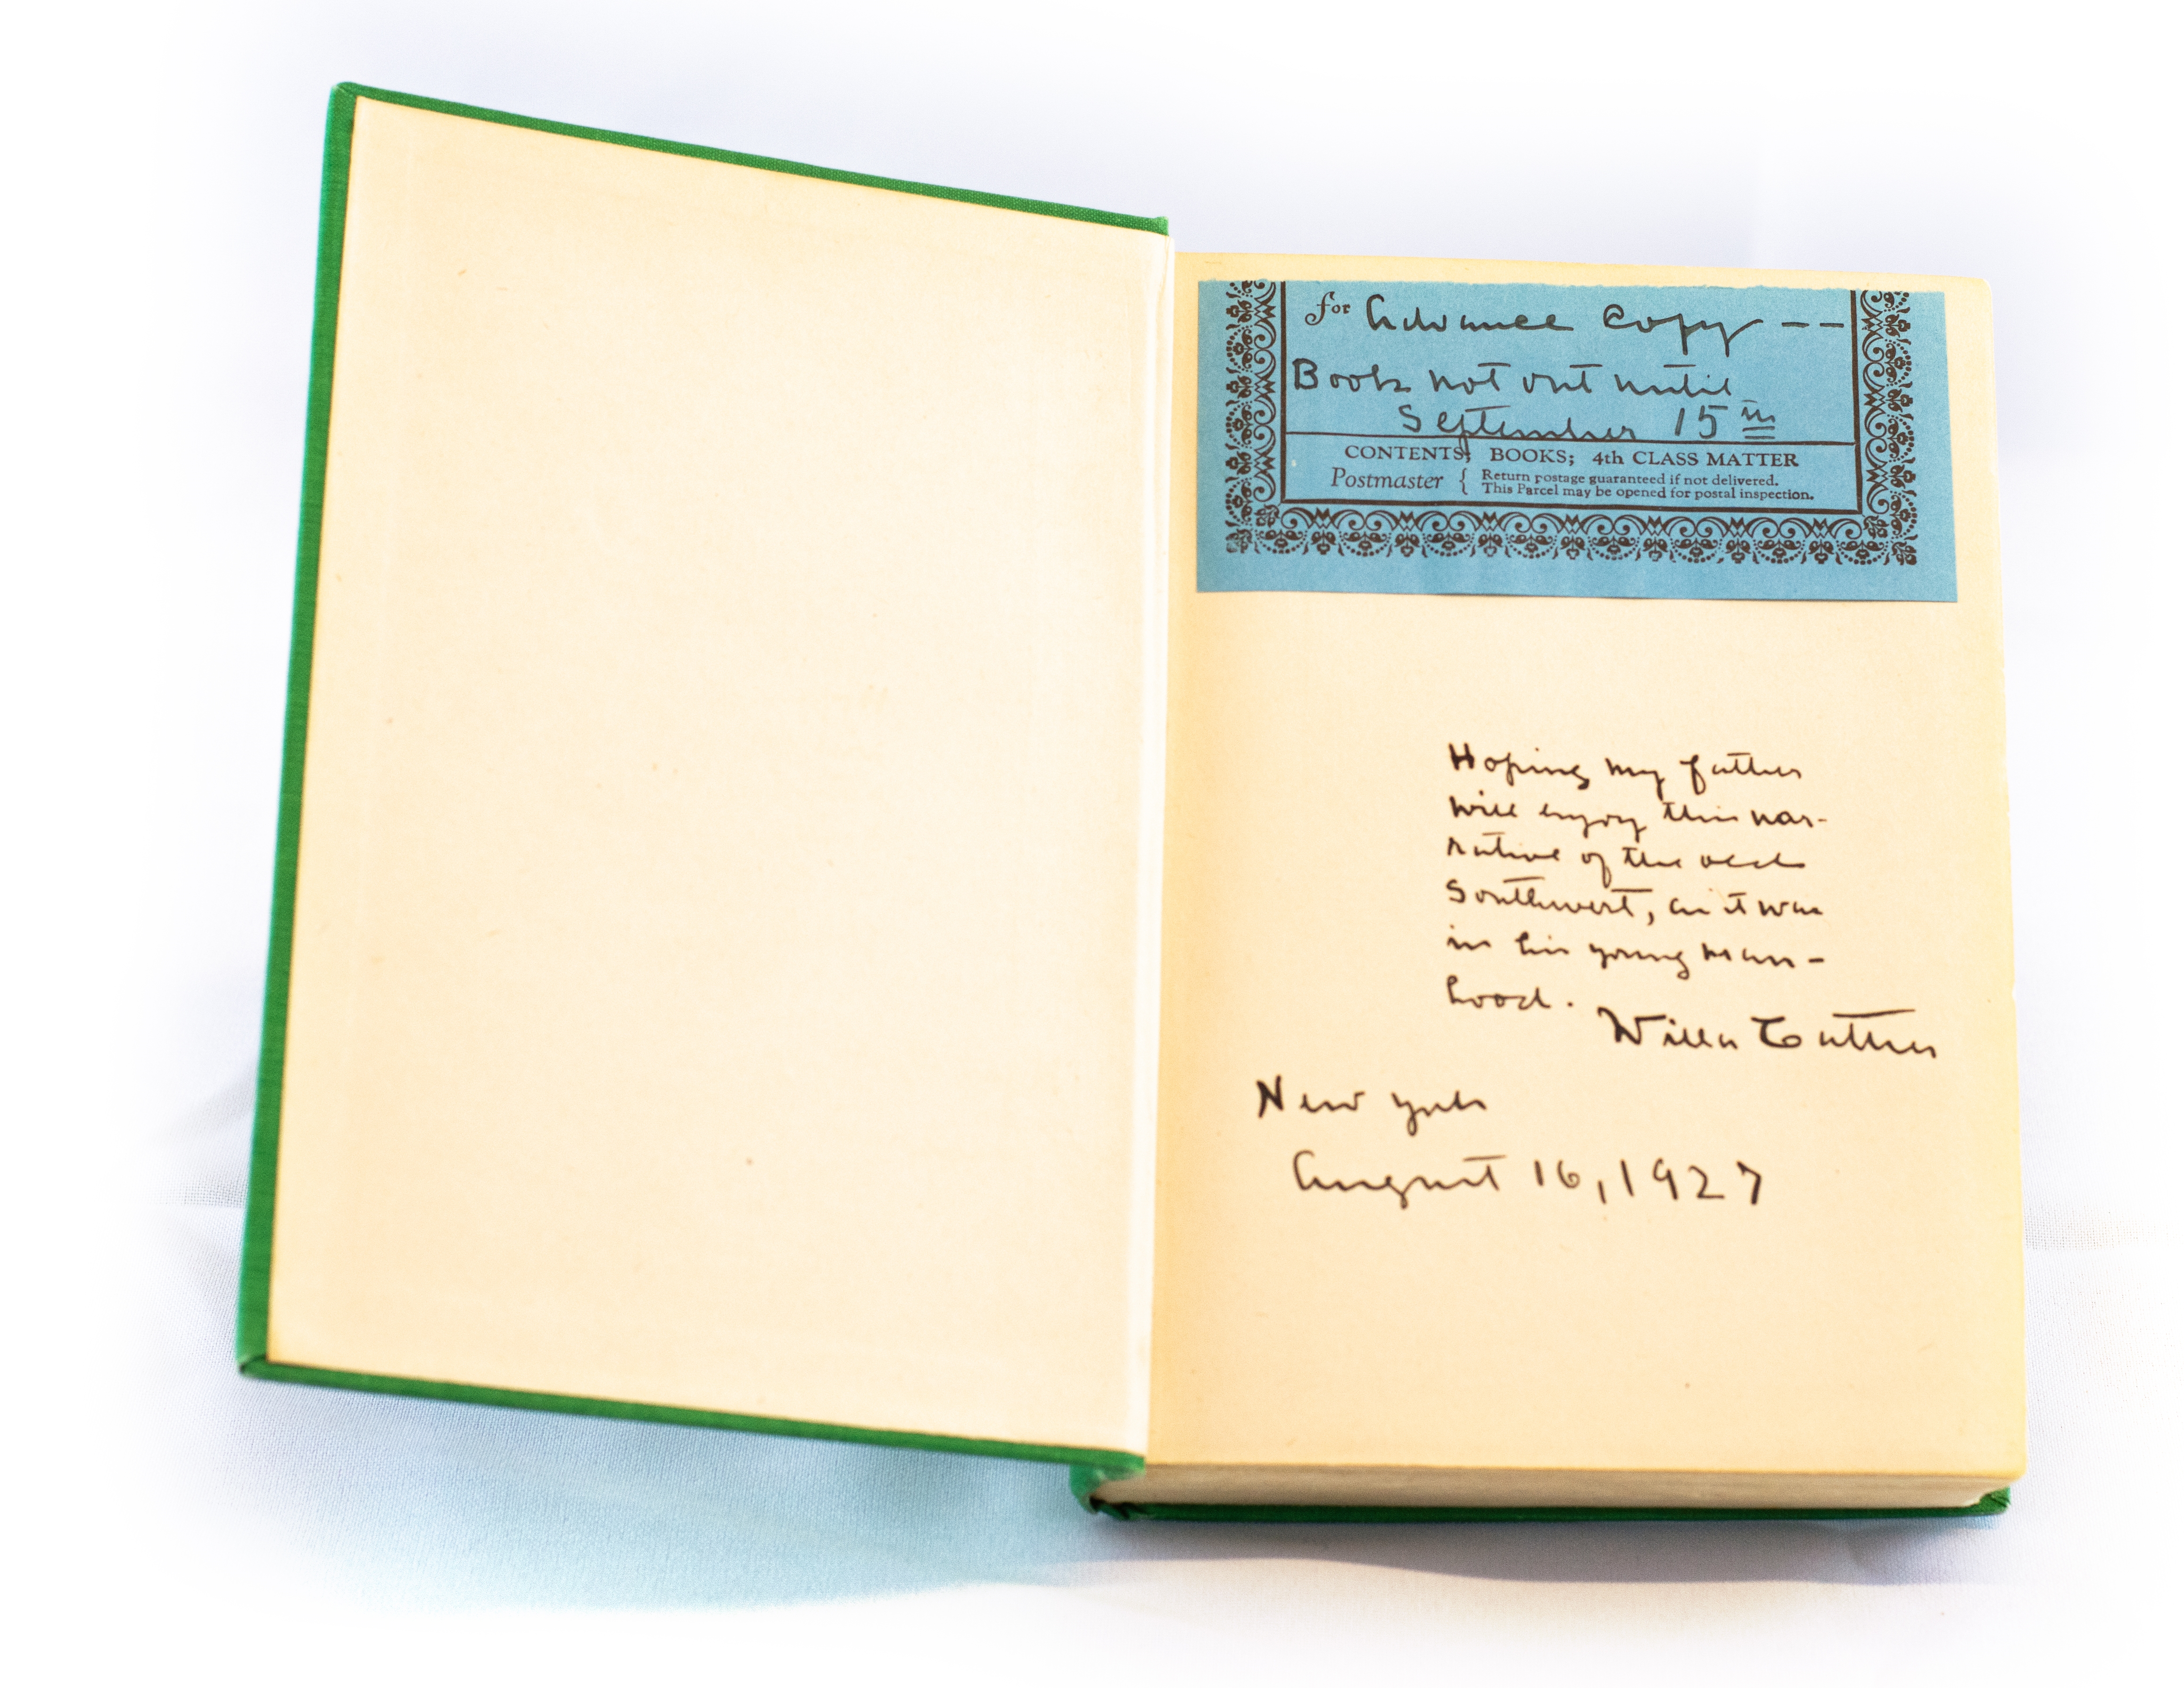 for Advance copy --
Book not out until
September 15th
CONTENTS; BOOKS; 4th CLASS MATTER
Postmaster { Return postage guaranteed if not delivered.
This Parcel may be opened for postal inspection.
Hoping my father
will enjoy this nar-
rative of the old
Southwest, as it was
in his young man-
hood.
Willa Cather
New York
August 16, 1927